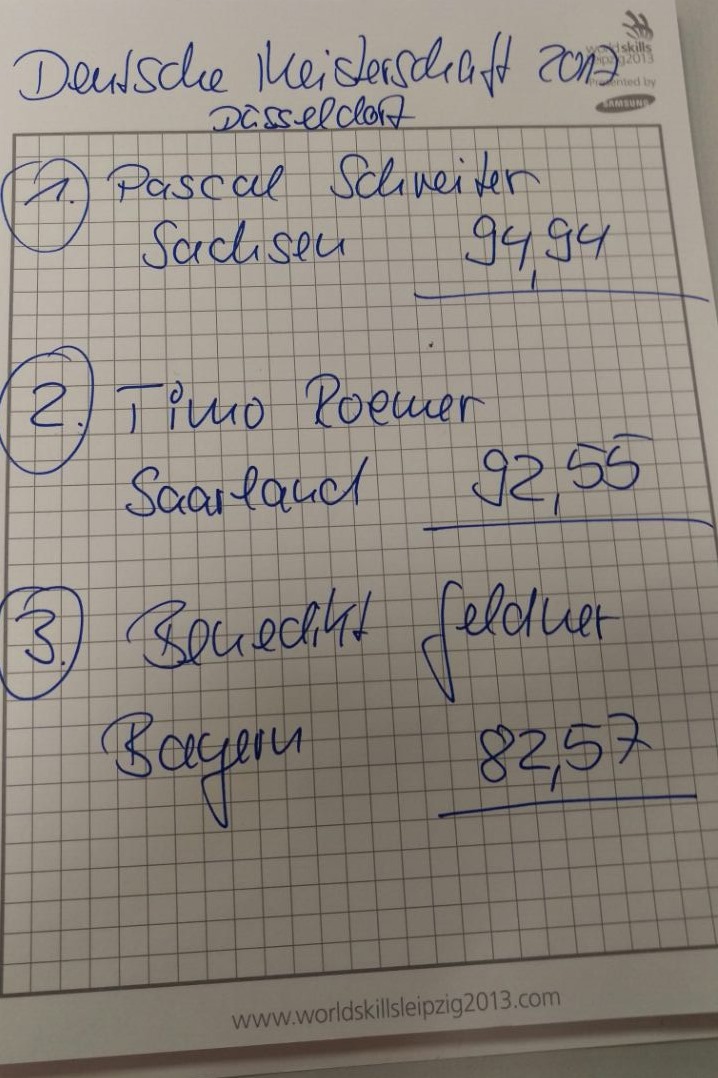 Deutsche Meisterschaft 2017
Düsseldorf
worldskills
leipzig2013
Presented by
SAMSUNG
1. Pascal Schreiter
Sachsen 94,94
2. Timo Roemer
Saarland 92,55
3. Benedikt Feldner
Bayern 82,57
www.worldskillsleipzig2013.com